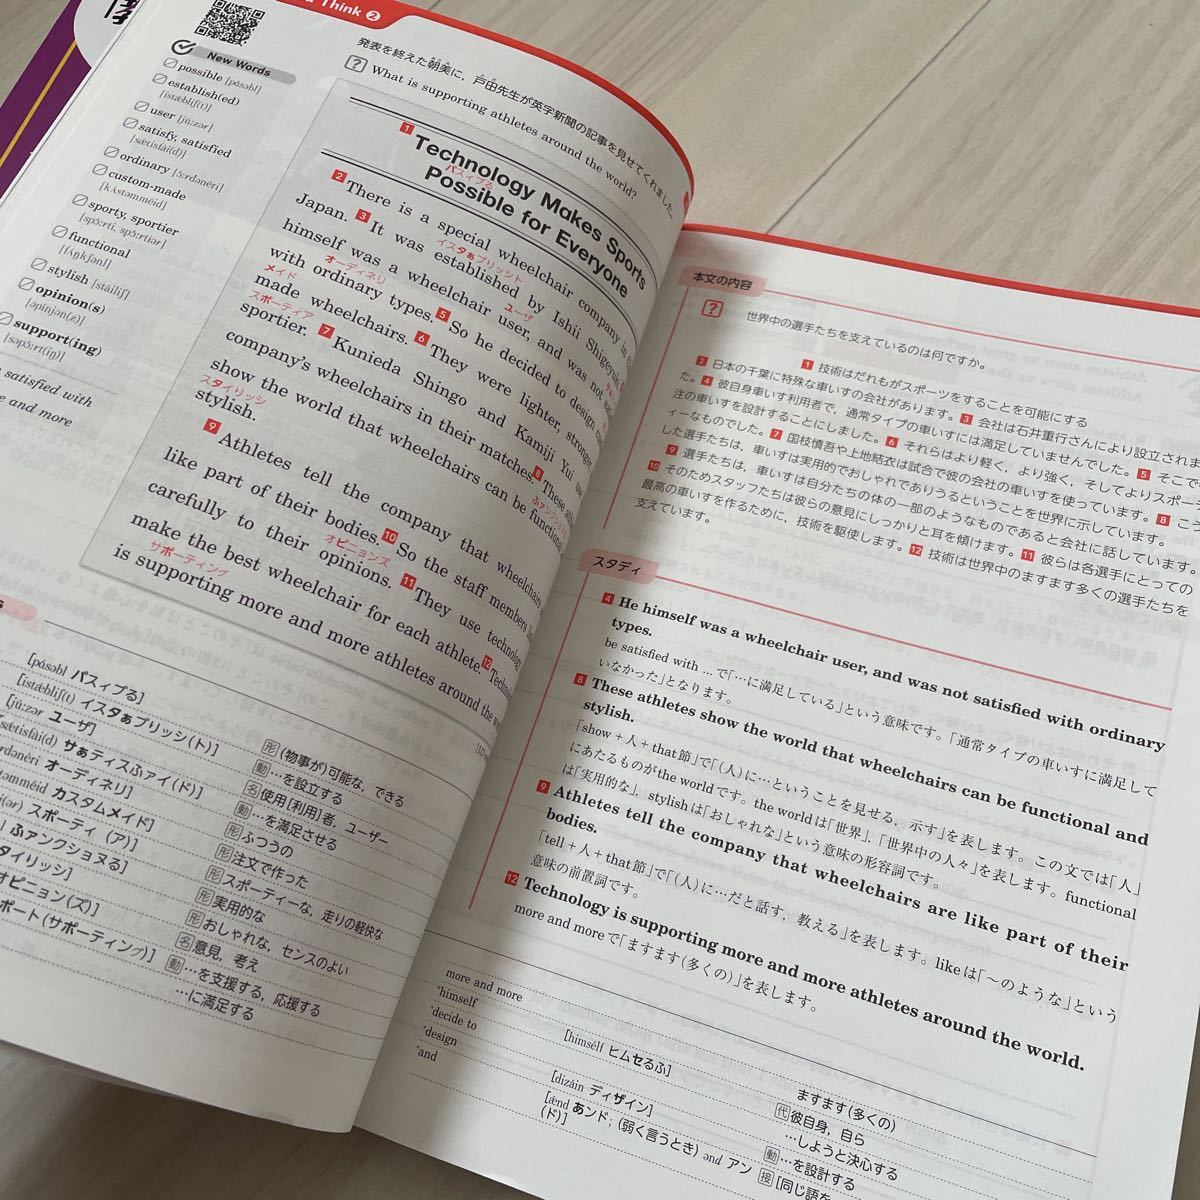 Think 2
New Words
possible [pásəbl]
establish(ed)
[istǽbliʃ(t)]
user [júːzər]
satisfy, satisfied
[sǽtisfài(d)]
ordinary [ɔ́ːrdənèri]
custom-made
[kʌ́stəmméid]
sporty, sportier
[spɔ́ːrti, spɔ́ːrtiər]
functional
[fʌ́ŋkʃənl]
stylish [stáiliʃ]
opinion(s)
[əpínjən(z)]
support(ing)
[səpɔ́ːrt(iŋ)]
satisfied with
more and more
発表を終えた朝美に，戸田先生が英字新聞の記事を見せてくれました。
? What is supporting athletes around the world?
1 Technology Makes Sports
パスィブる
Possible for Everyone
2 There is a special wheelchair company in
Japan. 3 It was established by Ishii Shigeyuki.
イスタぁブリッシト
himself was a wheelchair user, and was not
オーディネリ ユーザ
with ordinary types. 5 So he decided to design
メイド
made wheelchairs. 6 They were lighter, stronger,
スポーティア
sportier. 7 Kunieda Shingo and Kamiji Yui use
company's wheelchairs in their matches. 8 These
show the world that wheelchairs can be functional
スタイリッシ ふァンクショヌ
stylish.
9 Athletes tell the company that wheelchairs
like part of their bodies. 10 So the staff members
オピニョンズ
carefully to their opinions. 11 They use technology
make the best wheelchair for each athlete. 12
サポーティング
is supporting more and more athletes around the
[pásəbl パスィブる]
[istǽbliʃ(t) イスタぁブリッシ(ト)]
[júːzər ユーザ]
sǽtisfài(d) サぁティスふァイ(ド)]
rdənèri オーディネリ]
stəmméid カスタムメイド]
(ər) スポーティ (ア)]
ふァンクショヌる]
タイリッシ]
オピニョン(ズ)]
ポート(サポーティング)]
形 (物事が)可能な，できる
動 …を設立する
名 使用[利用]者，ユーザー
動 …を満足させる
形 ふつうの
形 注文で作った
形 スポーティーな，走りの軽快な
形 実用的な
形 おしゃれな，センスのよい
名 意見，考え
動 …を支援する，応援する
…に満足する
本文の内容
? 世界中の選手たちを支えているのは何ですか。
1 技術はだれもがスポーツをすることを可能にする
2 日本の千葉に特殊な車いすの会社があります。 3 会社は石井重行さんにより設立されま
た。 4 彼自身車いす利用者で，通常タイプの車いすには満足していませんでした。 5 そこで
注の車いすを設計することにしました。 6 それらはより軽く，より強く，そしてよりスポー
ィーなものでした。 7 国枝慎吾や上地結衣は試合で彼の会社の車いすを使っています。 8 こ
した選手たちは，車いすは実用的でおしゃれでありうるということを世界に示しています。
9 選手たちは，車いすは自分たちの体の一部のようなものであると会社に話しています。
10 そのためスタッフたちは彼らの意見にしっかりと耳を傾けます。 11 彼らは各選手にとっての
最高の車いすを作るために，技術を駆使します。 12 技術は世界中のますます多くの選手たちを
支えています。
スタディ
4 He himself was a wheelchair user, and was not satisfied with ordinary
types.
be satisfied with ...で「…に満足している」という意味です。「通常タイプの車いすに満足して
いなかった」となります。
8 These athletes show the world that wheelchairs can be functional and
stylish.
「show＋人＋that節」で「(人)に…ということを見せる，示す」を表します。この文では「人」
にあたるものがthe worldです。the worldは「世界」，「世界中の人々」を表します。functional
は「実用的な」，stylishは「おしゃれな」という意味の形容詞です。
9 Athletes tell the company that wheelchairs are like part of their
bodies.
「tell＋人＋that節」で「(人)に…だと話す，教える」を表します。likeは「～のような」という
意味の前置詞です。
12 Technology is supporting more and more athletes around the world.
more and moreで「ますます(多くの)」を表します。
more and more ますます(多くの)
himself [himsélf ヒムセるふ] 代 彼自身，自ら
decide to …しようと決心する
design [dizáin ディザイン] 動 …を設計する
and [ænd あンド；(弱く言うとき) ənd アン 接 [同じ語を
(ド)]